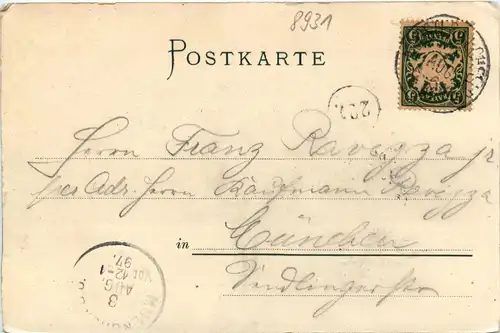 8931
POSTKARTE
5 5
AUG
Herrn Franz Ravizza jr
per Adr. Herrn Kaufmann Ravizza
in München
Sendlingerstr
3
AUG
VOR. 12-1
97.